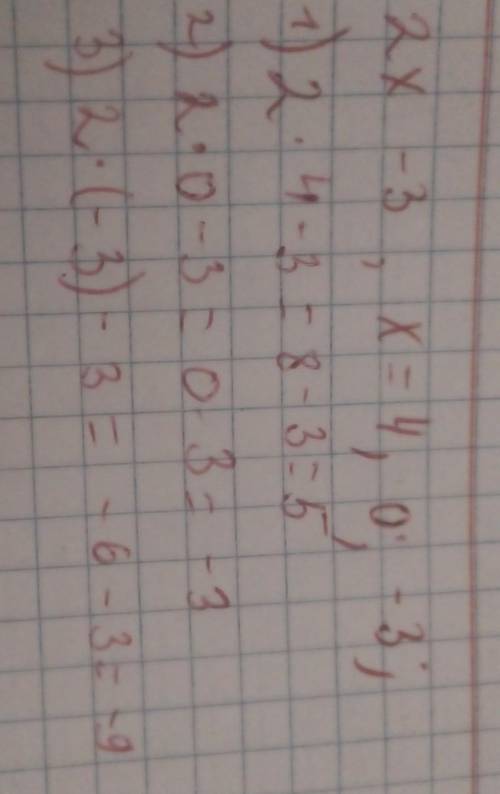 2x -3, x = 4, 0; -3;
1) 2 · 4 - 3 = 8 - 3 = 5,
2) 2 · 0 - 3 = 0 - 3 = -3
3) 2 · (-3) - 3 = -6 - 3 = -9